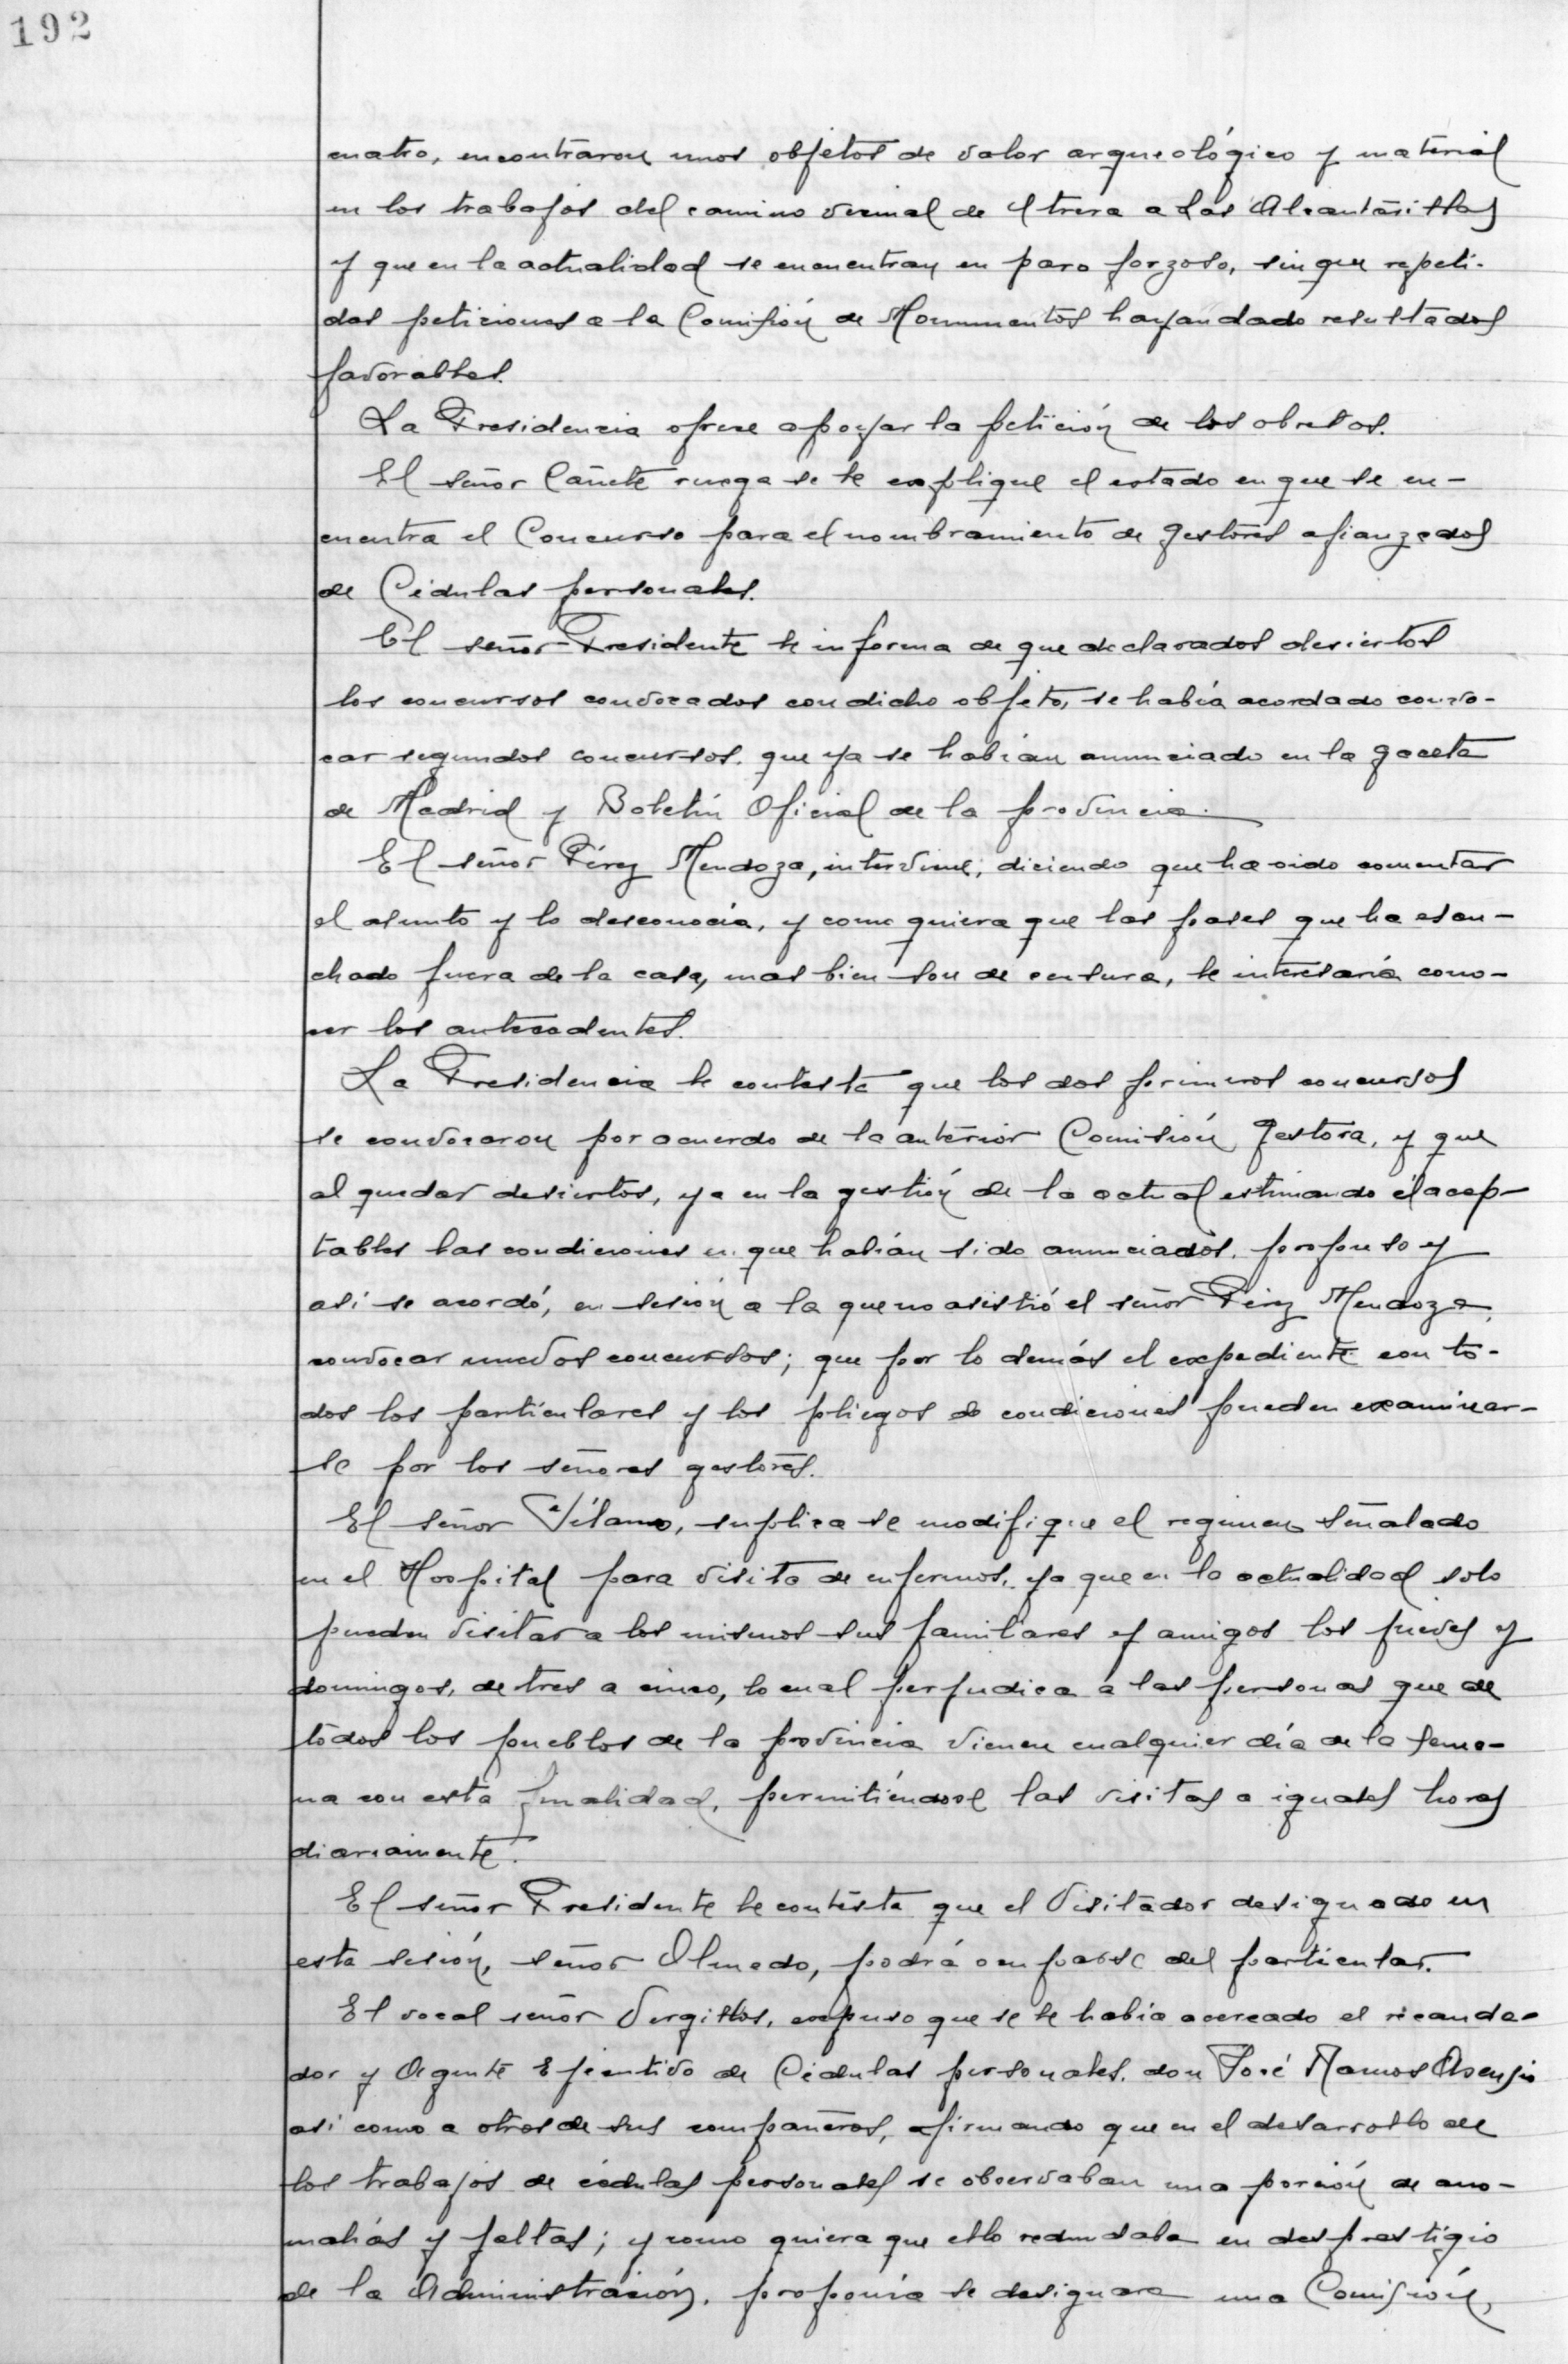 192
cuatro, encontraron unos objetos de valor arqueológico y material
en los trabajos del camino vecinal de Utrera a Las Alcantarillas
y que en la actualidad se encuentran en paro forzoso, sin que repeti-
das peticiones a la Comisión de Monumentos hayan dado resultados
favorables.
La Presidencia ofrece apoyar la petición de los obreros.
El señor Cañete ruega se le explique el estado en que se en-
cuentra el Concurso para el nombramiento de gestores afianzados
de Cédulas personales.
El señor Presidente le informa de que declarados desiertos
los concursos convocados con dicho objeto, se había acordado convo-
car segundos concursos, que ya se habían anunciado en la gaceta
de Madrid y Boletín Oficial de la provincia.
El señor Pérez Mendoza, interviene, diciendo que ha oido comentar
el asunto y lo desconocía, y como quiera que las frases que ha escu-
chado fuera de la casa, mas bien son de censura, le interesaría cono-
cer los antecedentes.
La Presidencia le contesta que los dos primeros concursos
se convocaron por acuerdo de la anterior Comisión Gestora, y que
al quedar desiertos, ya en la gestión de la actual estimando él acep-
tables las condiciones en que habían sido anunciados, propuso y
así se acordó, en sesión a la que no asistió el señor Pérez Mendoza,
convocar nuevos concursos; que por lo demás el expediente con to-
dos los particulares y los pliegos de condiciones pueden examinar-
se por los señores gestores.
El señor Vélamo, suplica se modifique el regimen señalado
en el Hospital para visita de enfermos, ya que en la actualidad solo
pueden visitar a los mismos sus familiares y amigos los jueves y
domingos, de tres a cinco, lo cual perjudica a las personas que de
todos los pueblos de la provincia vienen cualquier día de la sema-
na con esta finalidad, permitiéndose las visitas a iguales horas
diariamente.
El señor Presidente le contesta que el Visitador designado en
esta sesión, señor Olmedo, podrá ocuparse del particular.
El vocal señor Vergillos, expuso que se le había acercado el recauda-
dor y Agente Ejecutivo de Cédulas personales, don José Ramos Asensio
así como a otros de sus compañeros, afirmando que en el desarrollo de
los trabajos de cédulas personales se observaban una porción de ano-
malías y faltas; y como quiera que ello redundaba en desprestigio
de la Administración, proponía se designara una Comisión,